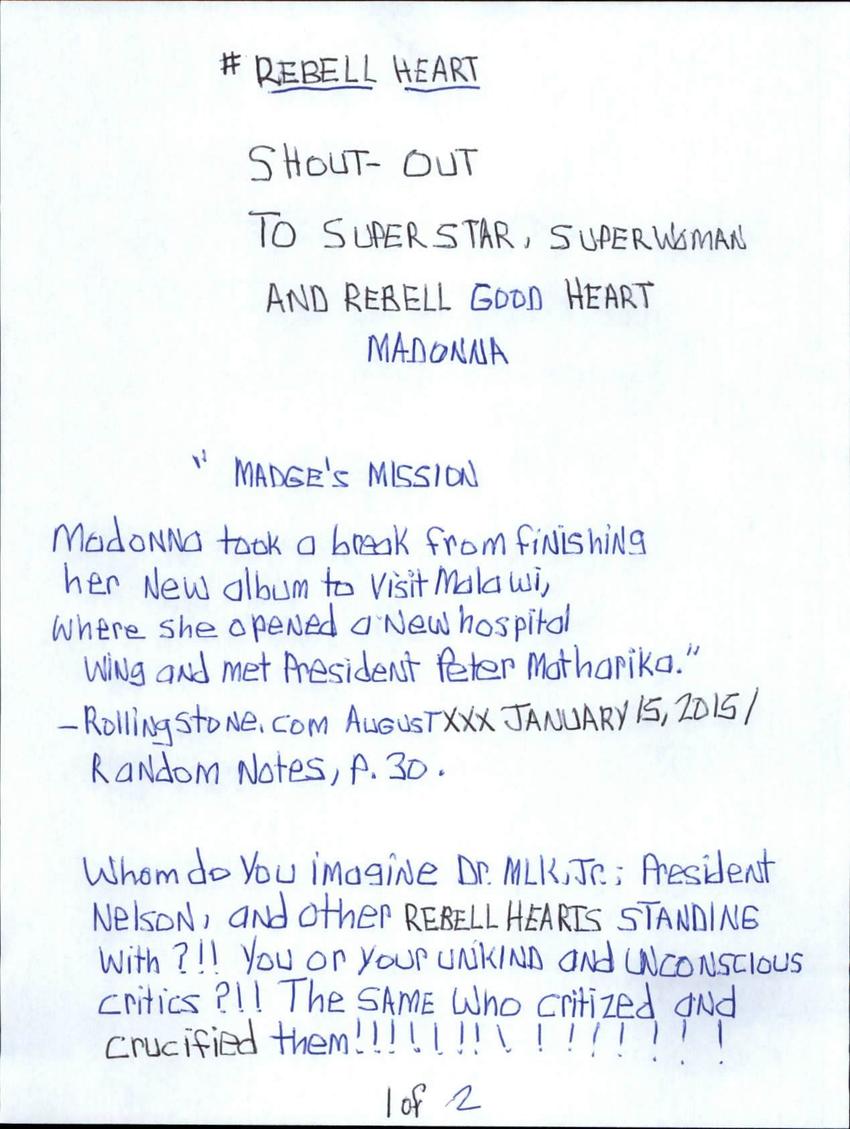 # REBELL HEART
SHOUT- OUT
TO SUPER STAR, SUPERWOMAN
AND REBELL GOOD HEART
MADONNA
" MADGE'S MISSION
Madonna took a break from finishing
her New album to Visit Malawi,
Where she opened a New hospital
Wing and met President Peter Matharika."
-RollingStone.com AUGUSTXXX JANUARY 15, 2015/
Random Notes, P. 30.
Whom do You imagine Dr. MLK, Jr.; President
Nelson, and other REBELL HEARTS STANDING
With ?!! You or your UNKIND and UNCONSCIOUS
critics ?!! The SAME Who critized and
crucified them!!!!!!!!!!!!!!!!
1 of 2